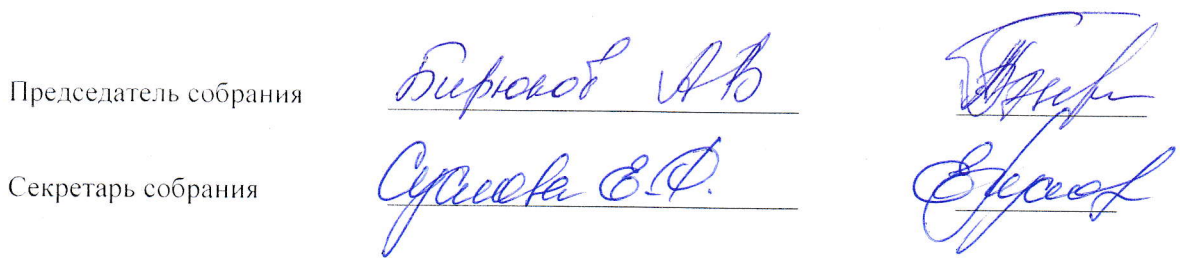 Председатель собрания Бирюков АВ
Секретарь собрания Суслова Е.Ф.